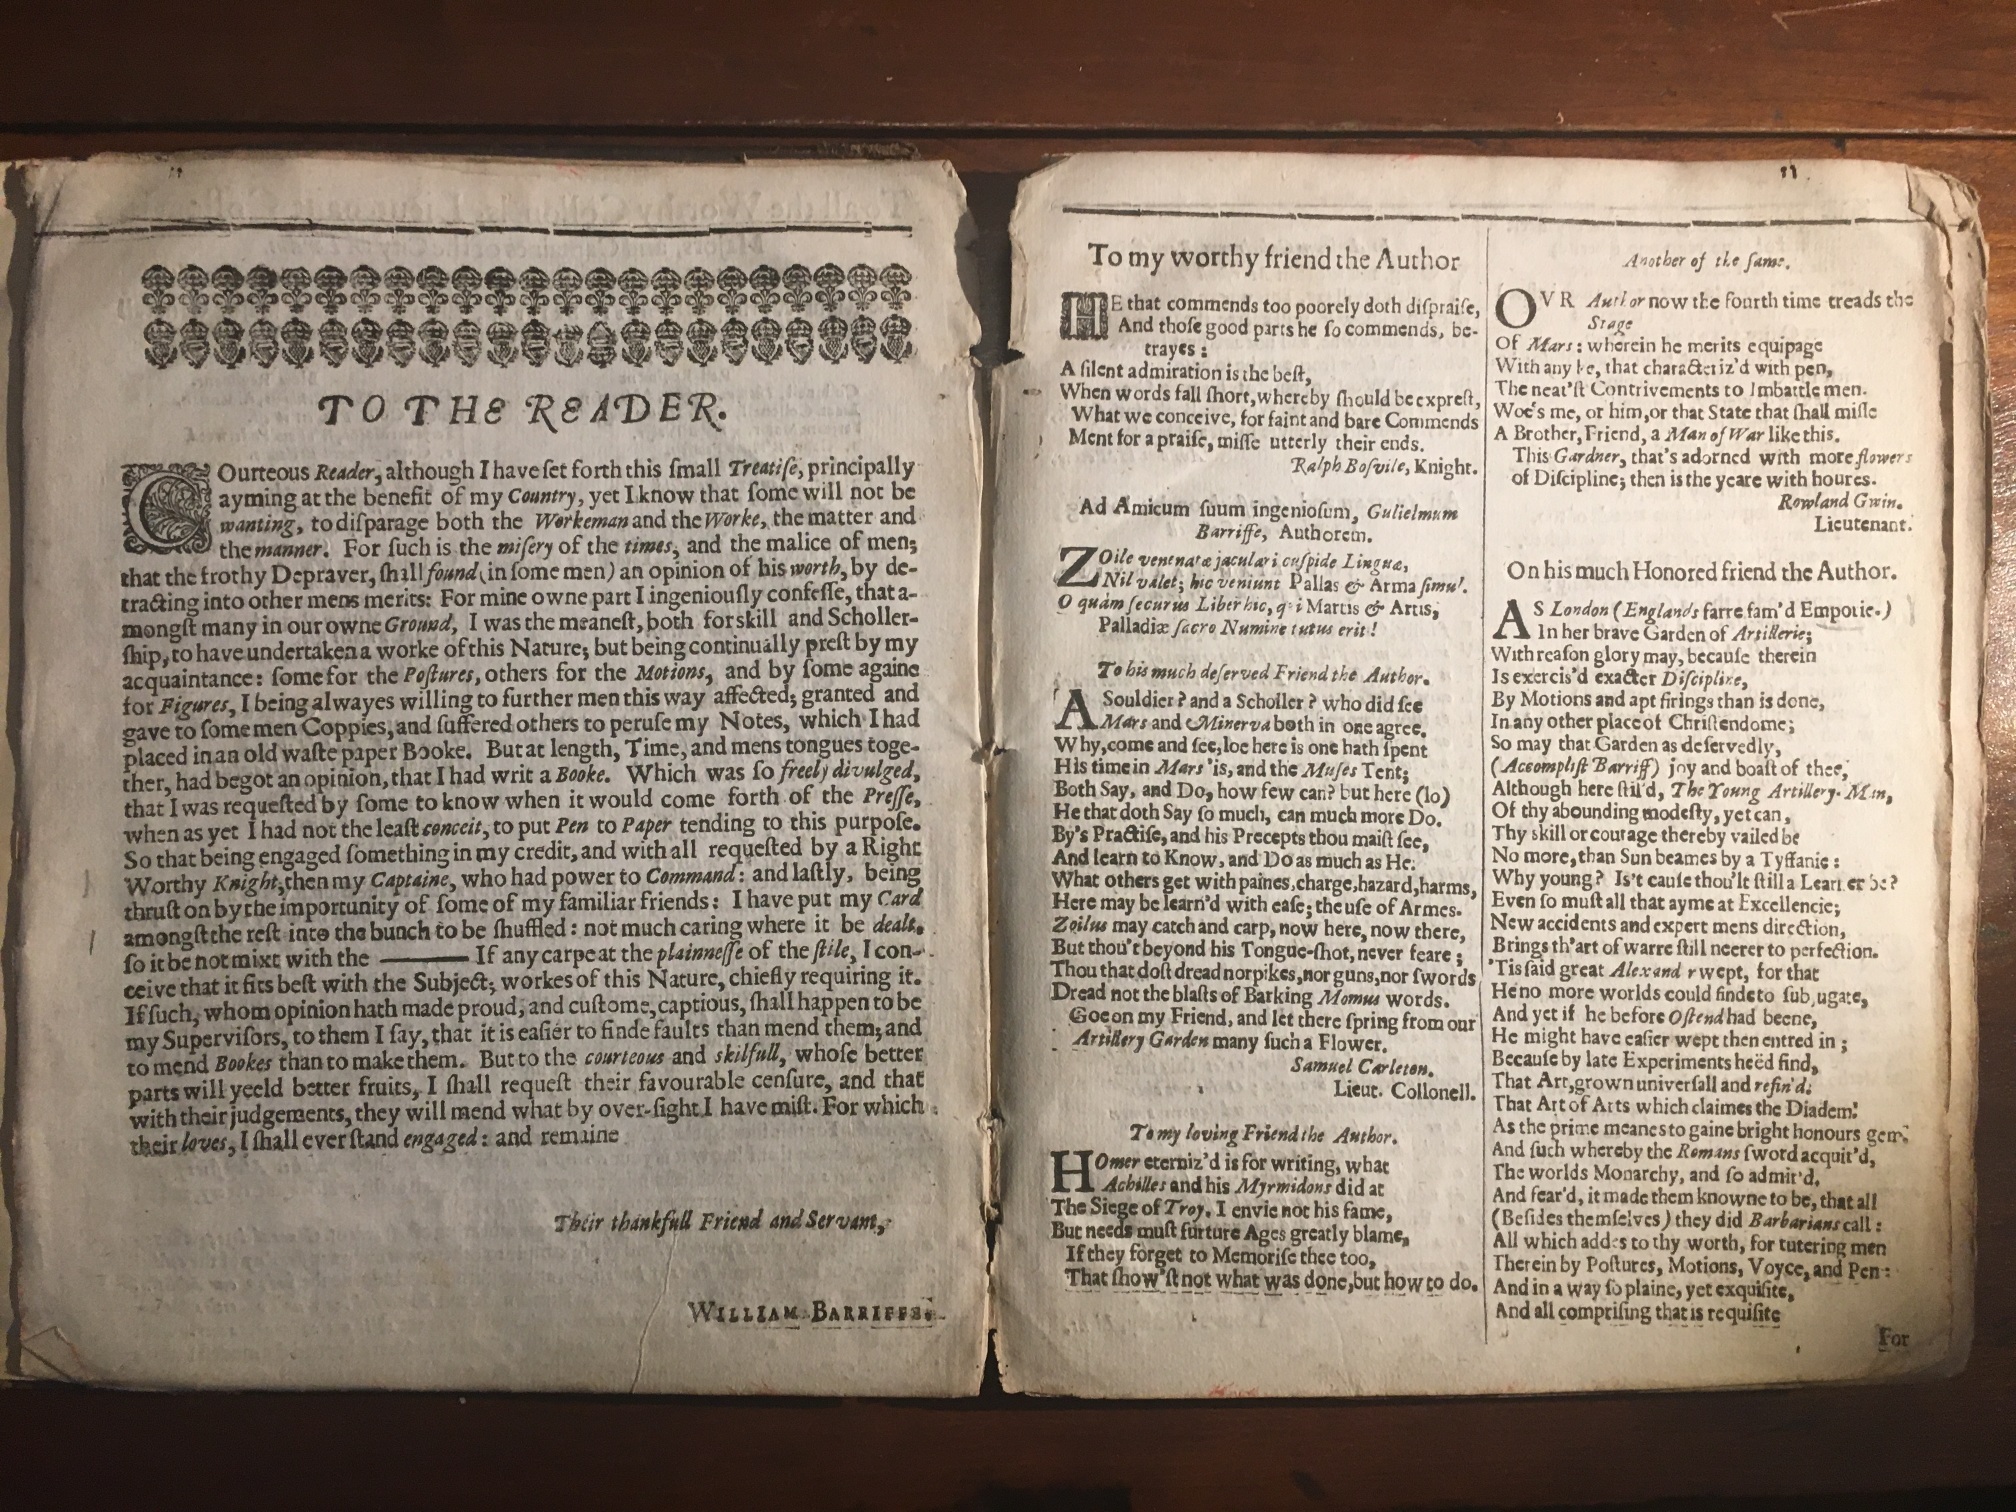 TO THE READER.
COurteous Reader, although I have ſet forth this ſmall Treatiſe, principally
ayming at the benefit of my Country, yet I know that ſome will not be
wanting, to diſparage both the Workeman and the Worke, the matter and
the manner. For ſuch is the miſery of the times, and the malice of men;
that the frothy Depraver, ſhall found (in ſome men) an opinion of his worth, by de-
tracting into other mens merits: For mine owne part I ingeniouſly confeſſe, that a-
mongſt many in our owne Ground, I was the meaneſt, both for skill and Scholler-
ſhip, to have undertaken a worke of this Nature; but being continually preſt by my
acquaintance: ſome for the Poſtures, others for the Motions, and by ſome againe
for Figures, I being alwayes willing to further men this way affected; granted and
gave to ſome men Coppies, and ſuffered others to peruſe my Notes, which I had
placed in an old waſte paper Booke. But at length, Time, and mens tongues toge-
ther, had begot an opinion, that I had writ a Booke. Which was ſo freely divulged,
that I was requeſted by ſome to know when it would come forth of the Preſſe,
when as yet I had not the leaſt conceit, to put Pen to Paper tending to this purpoſe.
So that being engaged ſomething in my credit, and with all requeſted by a Right
Worthy Knight, then my Captaine, who had power to Command: and laſtly, being
thruſt on by the importunity of ſome of my familiar friends: I have put my Card
amongſt the reſt into the bunch to be ſhuffled: not much caring where it be dealt,
ſo it be not mixt with the ——— If any carpe at the plainneſſe of the ſtile, I con-
ceive that it fits beſt with the Subject; workes of this Nature, chiefly requiring it.
If ſuch, whom opinion hath made proud, and cuſtome, captious, ſhall happen to be
my Superviſors, to them I ſay, that it is eaſier to finde faults than mend them; and
to mend Bookes than to make them. But to the courteous and skilfull, whoſe better
parts will yeeld better fruits, I ſhall requeſt their favourable cenſure, and that
with their judgements, they will mend what by over-ſight I have miſt. For which
their loves, I ſhall ever ſtand engaged: and remaine
Their thankfull Friend and Servant,
WILLIAM BARRIFFE.
To my worthy friend the Author
HE that commends too poorely doth diſpraiſe,
And thoſe good parts he ſo commends, be-
trayes:
A ſilent admiration is the beſt,
When words fall ſhort, whereby ſhould be expreſt,
What we conceive, for faint and bare Commends
Ment for a praiſe, miſſe utterly their ends.
Ralph Boſvile, Knight.
Ad Amicum ſuum ingenioſum, Gulielmum
Barriffe, Authorem.
ZOile venenatæ jaculari cuſpide Linguæ,
Nil valet; hic veniunt Pallas & Arma ſimul.
O quám ſecurus Liber hic, qui Martis & Artis,
Palladiæ ſacro Numine tutus erit!
To his much deſerved Friend the Author.
A Souldier? and a Scholler? who did ſee
Mars and Minerva both in one agree.
Why, come and ſee, loe here is one hath ſpent
His time in Mars'is, and the Muſes Tent;
Both Say, and Do, how few can? but here (lo)
He that doth Say ſo much, can much more Do.
By's Practiſe, and his Precepts thou maiſt ſee,
And learn to Know, and Do as much as He.
What others get with paines, charge, hazard, harms,
Here may be learn'd with eaſe; the uſe of Armes.
Zoilus may catch and carp, now here, now there,
But thou'rt beyond his Tongue-ſhot, never feare;
Thou that doſt dread nor pikes, nor guns, nor ſwords
Dread not the blaſts of Barking Momus words.
Goe on my Friend, and let there ſpring from our
Artillery Garden many ſuch a Flower.
Samuel Carleton.
Lieut. Collonell.
To my loving Friend the Author.
HOmer eterniz'd is for writing, what
Achilles and his Myrmidons did at
The Siege of Troy. I envie not his fame,
But needs muſt furture Ages greatly blame,
If they forget to Memoriſe thee too,
That ſhow'ſt not what was done, but how to do.
Another of the ſame.
OVR Author now the fourth time treads the
Stage
Of Mars: wherein he merits equipage
With any he, that characteriz'd with pen,
The neat'ſt Contrivements to Imbattle men.
Woe's me, or him, or that State that ſhall miſſe
A Brother, Friend, a Man of War like this.
This Gardner, that's adorned with more flowers
of Diſcipline; then is the yeare with houres.
Rowland Gwin.
Lieutenant.
On his much Honored friend the Author.
AS London (Englands farre fam'd Emporie.)
In her brave Garden of Artillerie;
With reaſon glory may, becauſe therein
Is exercis'd exacter Diſcipline,
By Motions and apt firings than is done,
In any other place of Chriſtendome;
So may that Garden as deſervedly,
(Accompliſt Barriff) joy and boaſt of thee,
Although here ſtil'd, The Young Artillery-Man,
Of thy abounding modeſty, yet can,
Thy skill or courage thereby vailed be
No more, than Sun beames by a Tyffanie:
Why young? Is't cauſe thou'lt ſtill a Learner be?
Even ſo muſt all that ayme at Excellencie;
New accidents and expert mens direction,
Brings th'art of warre ſtill neerer to perfection.
'Tis ſaid great Alexand r wept, for that
He no more worlds could finde to ſubjugate,
And yet if he before Oſtend had beene,
He might have eaſier wept then entred in;
Becauſe by late Experiments heed find,
That Art, grown univerſall and refin'd:
That Art of Arts which claimes the Diadem:
As the prime meanes to gaine bright honours gem:
And ſuch whereby the Romans ſword acquit'd,
The worlds Monarchy, and ſo admir'd,
And fear'd, it made them knowne to be, that all
(Beſides themſelves) they did Barbarians call:
All which addes to thy worth, for tutering men
Therein by Poſtures, Motions, Voyce, and Pen:
And in a way ſo plaine, yet exquiſite,
And all compriſing that is requiſite
For